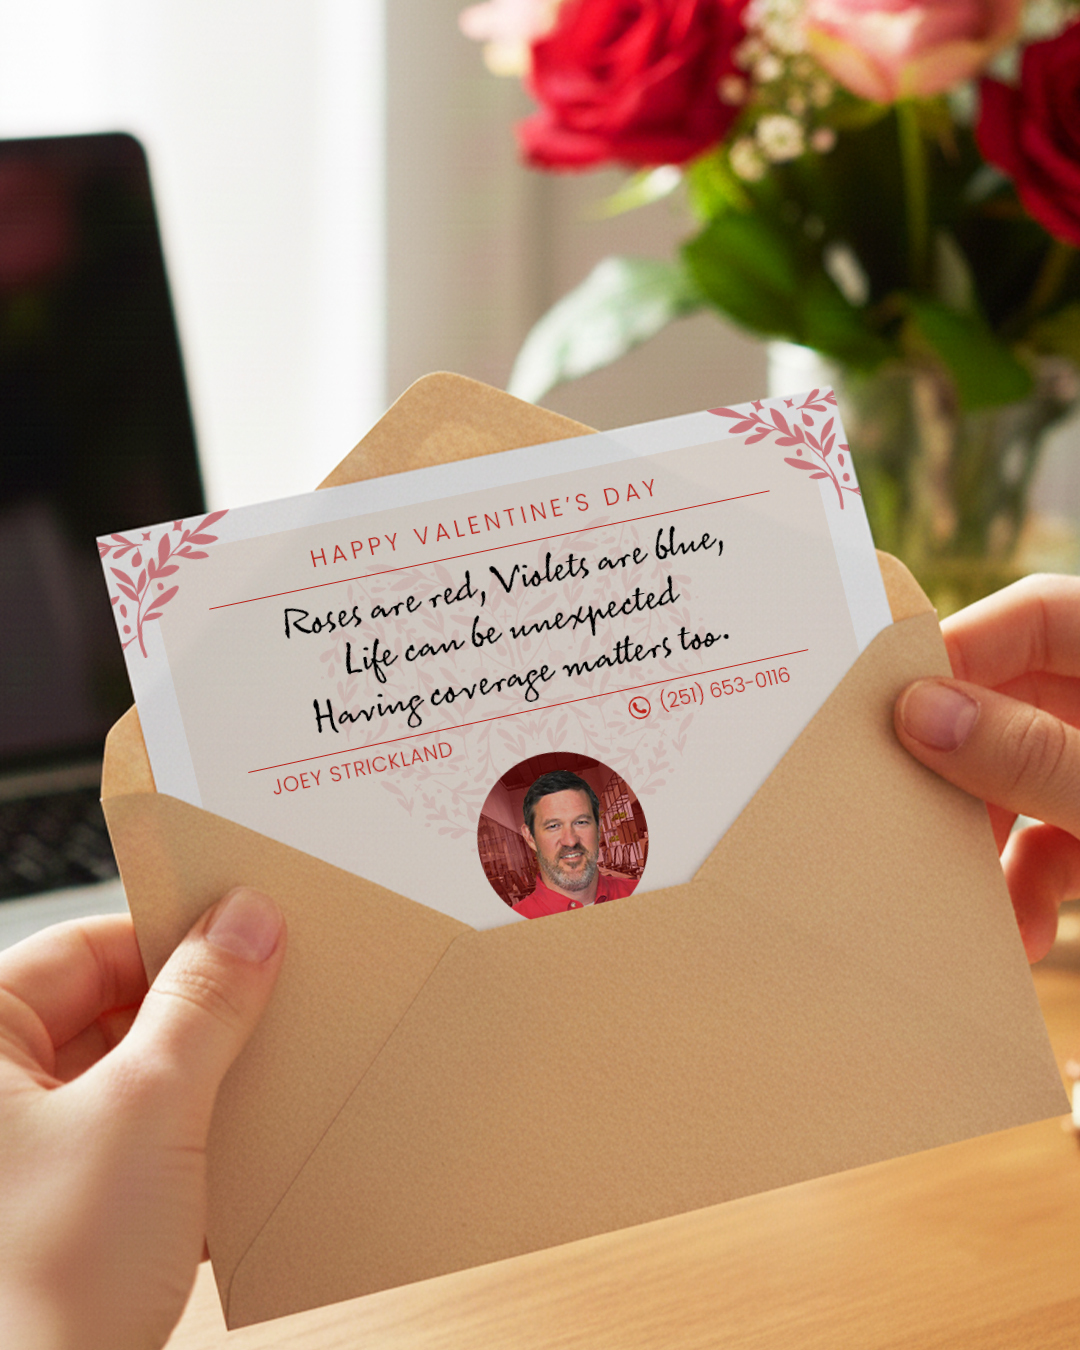 HAPPY VALENTINE'S DAY
Roses are red, Violets are blue,
Life can be unexpected
Having coverage matters too.
JOEY STRICKLAND
(251) 653-0116